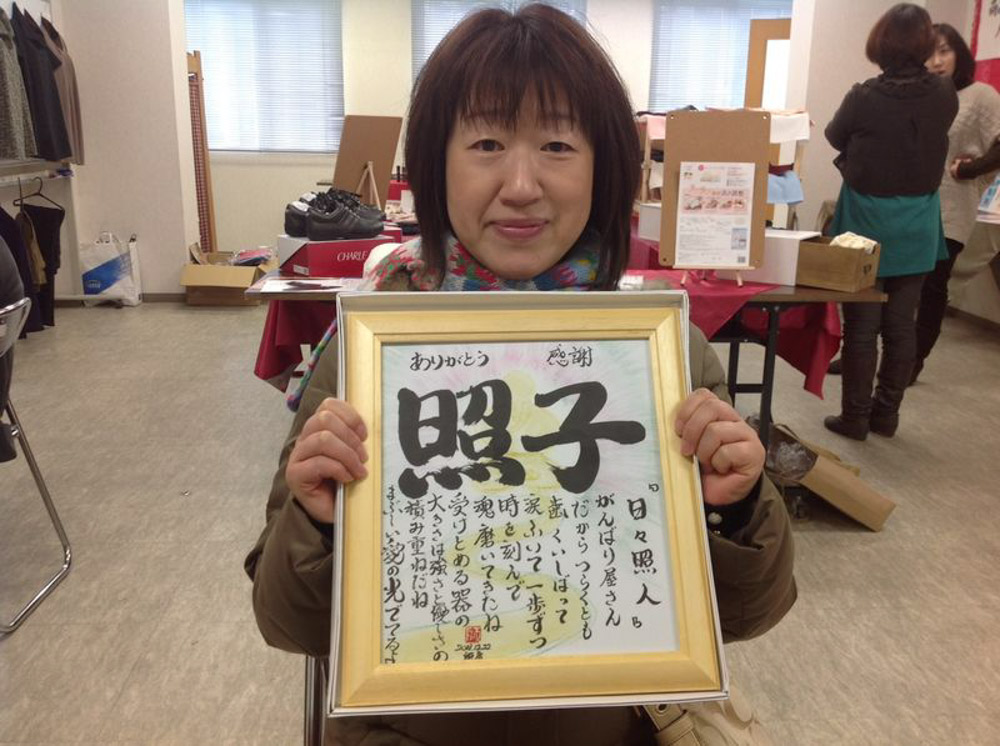 ありがとう
感謝
照子
『日々照人』
がんばり屋さん
だからつらくとも
歯くいしばって
涙ふいて一歩ずつ
時を刻んで
魂磨いてきたね
受けとめる器の
大きさは強さと優しさの
積み重ねだね
まぶしい愛の光でてるよ
CHARLE